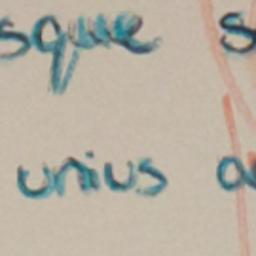 sque s
unius a